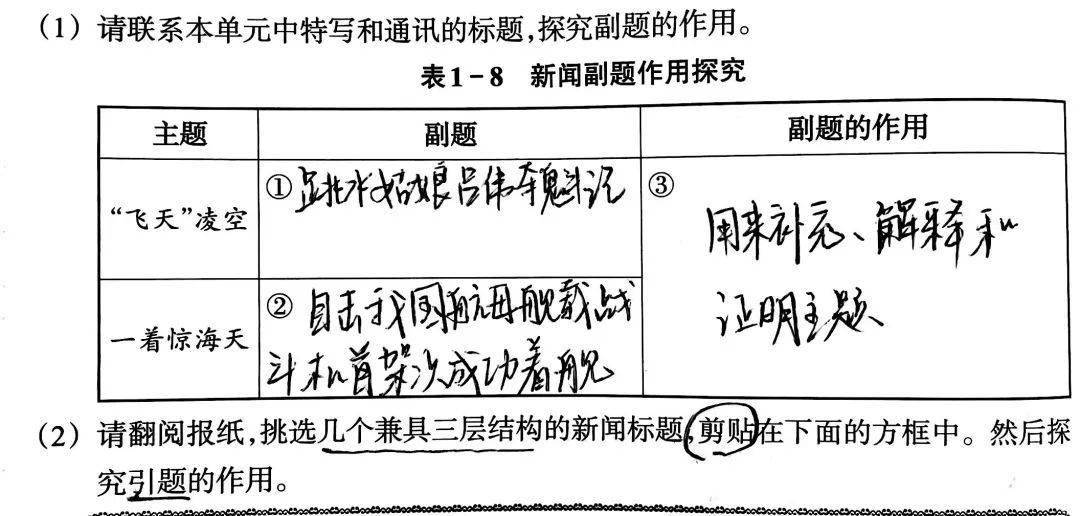 (1) 请联系本单元中特写和通讯的标题,探究副题的作用。
表1-8 新闻副题作用探究
主题
副题
副题的作用
“飞天”凌空
①跳水姑娘吕伟夺魁记
③
用来补充、解释和
证明主题
一着惊海天
②目击我国航母舰载战
斗机首架次成功着舰
(2) 请翻阅报纸,挑选几个兼具三层结构的新闻标题,剪贴在下面的方框中。然后探
究引题的作用。